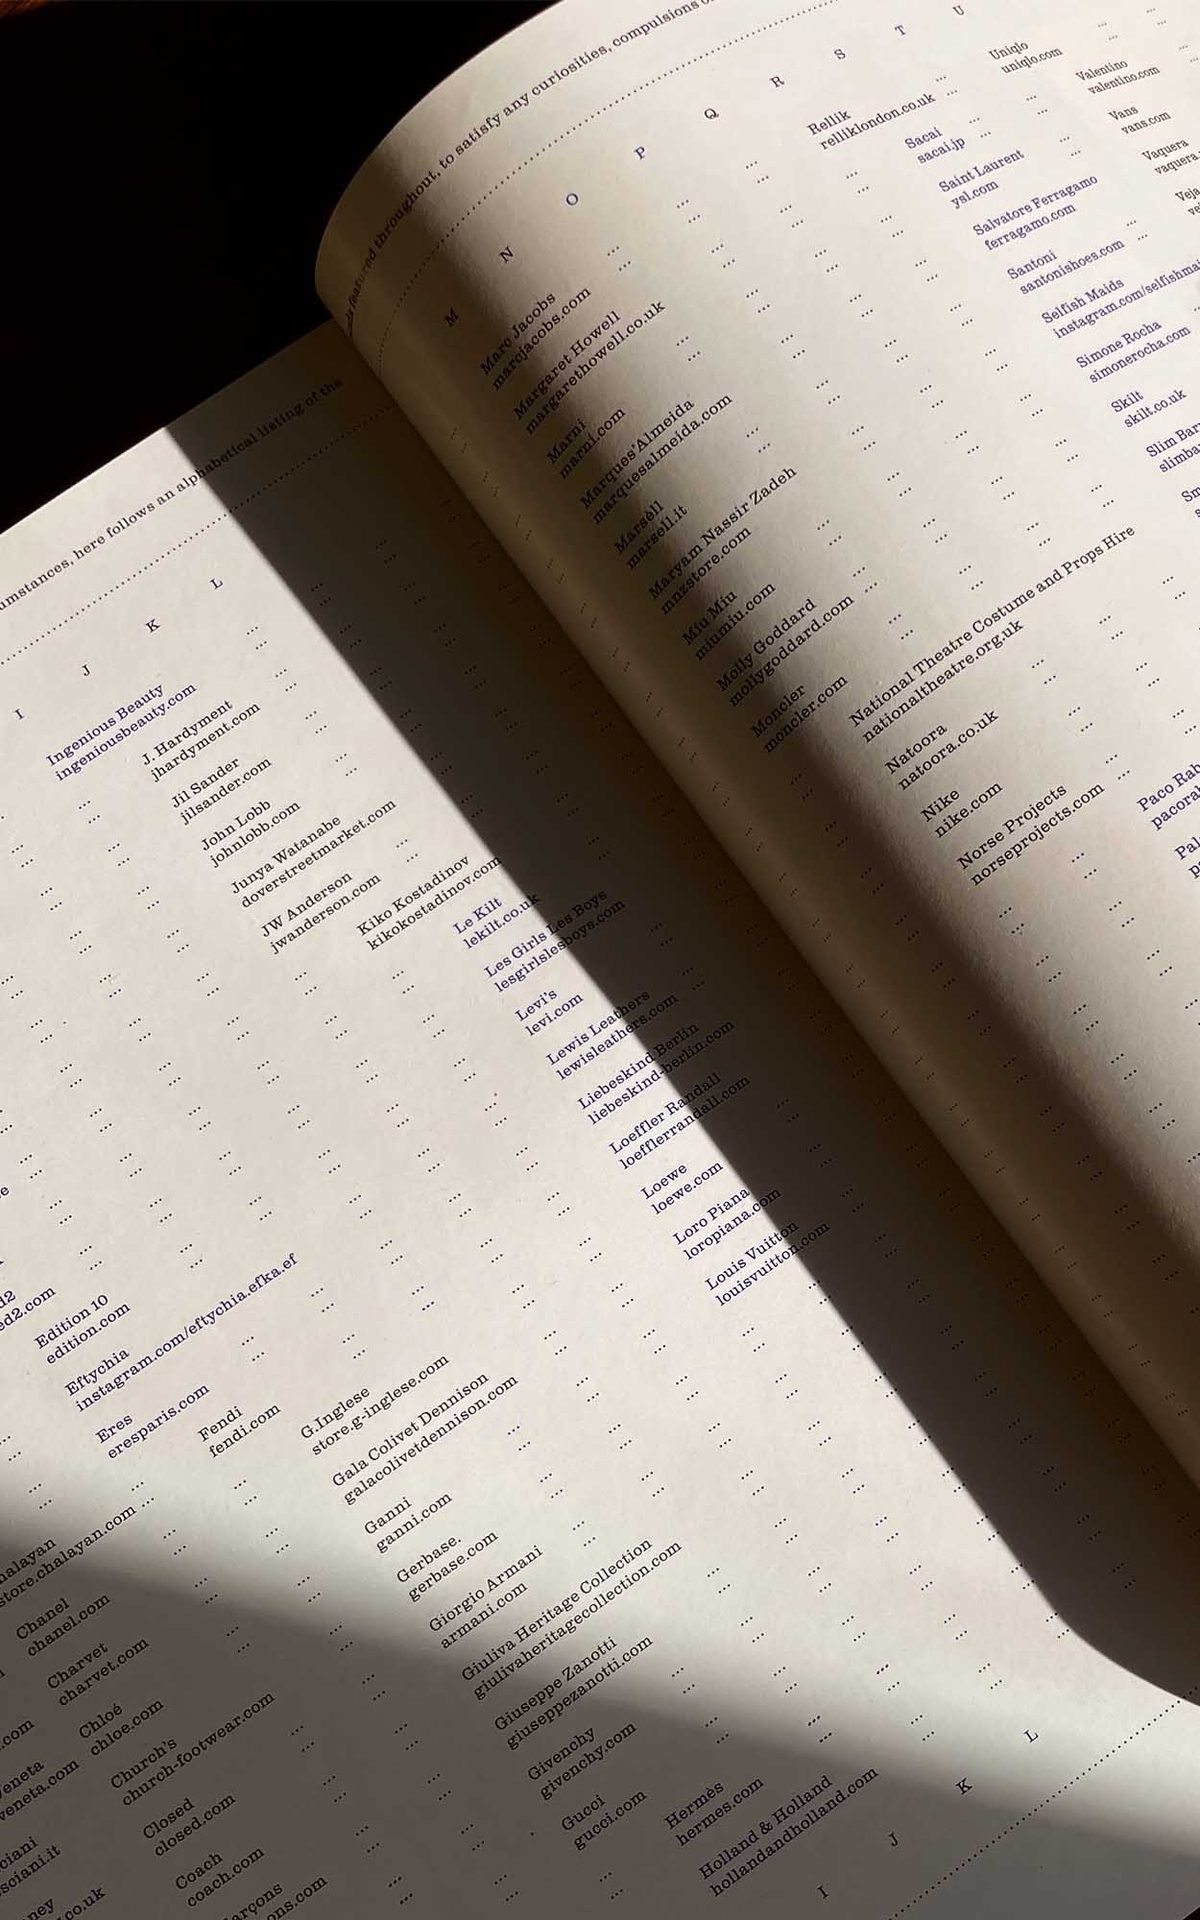 umstances, here follows an alphabetical listing of the
I
J
K
L
Ingenious Beauty
ingeniousbeauty.com
J. Hardyment
jhardyment.com
Jil Sander
jilsander.com
John Lobb
johnlobb.com
Junya Watanabe
doverstreetmarket.com
JW Anderson
jwanderson.com
Kiko Kostadinov
kikokostadinov.com
Le Kilt
lekilt.co.uk
Les Girls Les Boys
lesgirlslesboys.com
Levi's
levi.com
Lewis Leathers
lewisleathers.com
Liebeskind Berlin
liebeskind-berlin.com
Loeffler Randall
loefflerrandall.com
Loewe
loewe.com
Loro Piana
loropiana.com
Louis Vuitton
louisvuitton.com
ed2.com
Edition 10
edition.com
Eftychia
instagram.com/eftychia.efka.ef
Eres
eresparis.com
Fendi
fendi.com
G.Inglese
store.g-inglese.com
Gala Colivet Dennison
galacolivetdennison.com
Ganni
ganni.com
Gerbase.
gerbase.com
Giorgio Armani
armani.com
Giuliva Heritage Collection
giulivaheritagecollection.com
Giuseppe Zanotti
giuseppezanotti.com
Givenchy
givenchy.com
Gucci
gucci.com
Hermès
hermes.com
Holland & Holland
hollandandholland.com
halayan
store.chalayan.com
Chanel
chanel.com
Charvet
charvet.com
Chloé
chloe.com
Church's
church-footwear.com
Closed
closed.com
Coach
coach.com
arçons
ons.com
.com
Veneta
veneta.com
ciani
sciani.it
ney
.co.uk
I
J
K
L
featured throughout, to satisfy any curiosities, compulsions
M
N
O
P
Q
R
S
T
U
Marc Jacobs
marcjacobs.com
Margaret Howell
margarethowell.co.uk
Marni
marni.com
Marques'Almeida
marquesalmeida.com
Marsèll
marsell.it
Maryam Nassir Zadeh
mnzstore.com
Miu Miu
miumiu.com
Molly Goddard
mollygoddard.com
Moncler
moncler.com
National Theatre Costume and Props Hire
nationaltheatre.org.uk
Natoora
natoora.co.uk
Nike
nike.com
Norse Projects
norseprojects.com
Paco Rab
pacorab
Pal
Rellik
relliklondon.co.uk
Sacai
sacai.jp
Saint Laurent
ysl.com
Salvatore Ferragamo
ferragamo.com
Santoni
santonishoes.com
Selfish Maids
instagram.com/selfishmai
Simone Rocha
simonerocha.com
Skilt
skilt.co.uk
Slim Bar
slimba
Sm
Uniqlo
uniqlo.com
Valentino
valentino.com
Vans
vans.com
Vaquera
vaquera.
Veja
ve